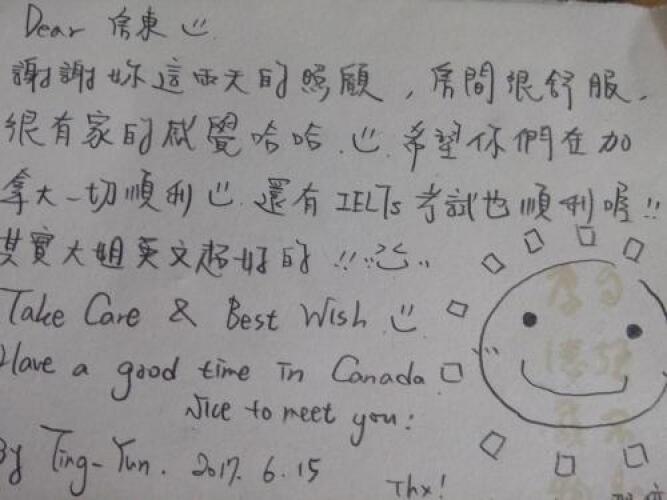 Dear 房東
謝謝妳這兩天的照顧，房間很舒服，
很有家的感覺哈哈．希望你們在加
拿大一切順利 還有 IELTs 考試也順利喔!!
其實大姐英文超好的 !!
Take Care & Best Wish
Have a good time in Canada
Nice to meet you:
By Ting-Yun. 2017. 6. 15
Thx!